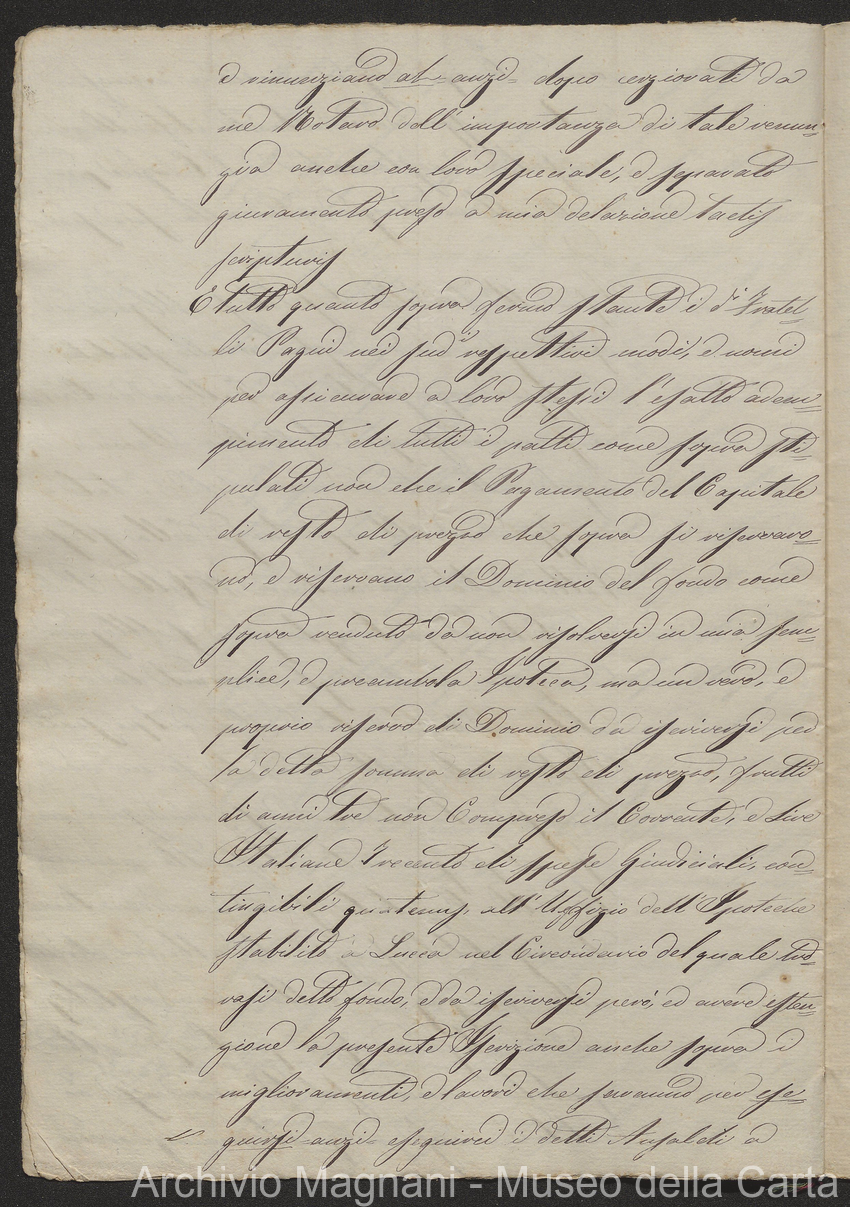 e rinunziano at = anzi = dopo cerziorati da
me Notaro dell'importanza di tale renun=
zia anche con loro speciale, e separato
giuramento preso a mia delazione tactis
scripturis
E tutto quanto sopra fermo stante i dⁱ Fratel=
li Pagni nei sudⁱ respettivi modi, e nomi
per assicurare a loro stessi l'esatto adem=
pimento di tutti i patti come sopra sti=
pulati non che il Pagamento del Capitale
di resto di prezzo che sopra si riservaro=
no, e riservano il Dominio del fondo come
sopra venduto da non risolversi in mia sem=
plice, e preambola Ipoteca, ma un vero, e
proprio riservo di Dominio da iscriversi per
la detta somma di resto di prezzo, frutti
di anni tre non Compreso il Corrente, e Lire
Italiane Trecento di spese Giudiciali, con=
tingibili quatenus, all'Uffizio dell'Ipoteche
stabilito a Lucca nel Circondario del quale tro=
vasi detto fondo, e da iscriversi però, ed avere esten=
zione la presente Iscrizione anche sopra i
miglioramenti, e lavori che saranno per ese=
guirsi = anzi = eseguirci i detti Ansaldi a
Archivio Magnani - Museo della Carta